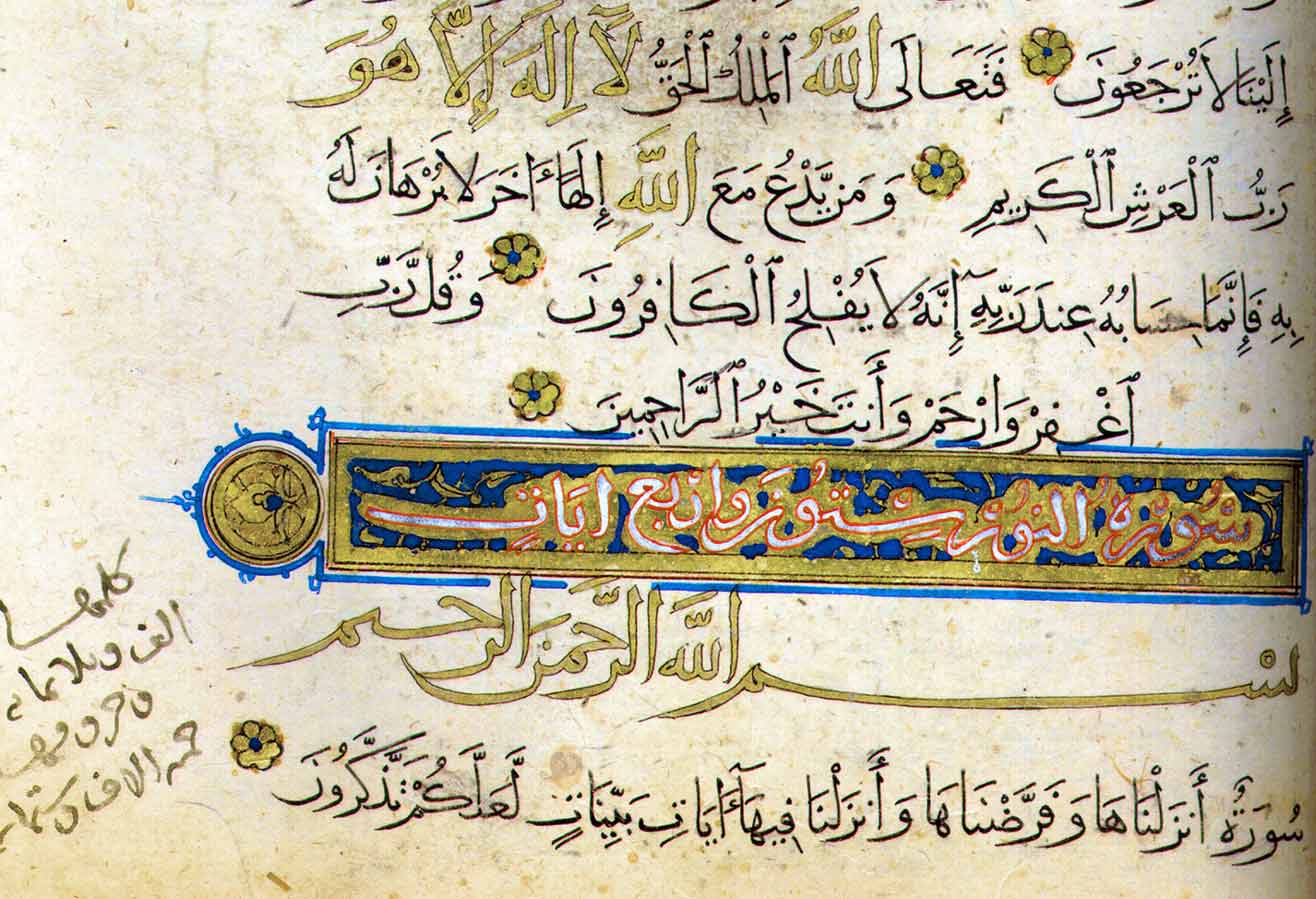 إِلَيْنَا لَا تُرْجَعُونَ فَتَعَالَى اللَّهُ ٱلْمَلِكُ ٱلْحَقُّ لَآ إِلَهَ إِلَّا هُوَ
رَبُّ ٱلْعَرْشِ ٱلْكَرِيمِ وَمَن يَّدْعُ مَعَ اللَّهِ إِلَهًا ءَاخَرَ لَا بُرْهَانَ لَهُ
بِهِ فَإِنَّمَا حِسَابُهُ عِندَ رَبِّهِ إِنَّهُ لَا يُفْلِحُ ٱلْكَافِرُونَ وَقُل رَّبِّ
ٱغْفِرْ وَارْحَمْ وَأَنتَ خَيْرُ ٱلرَّاحِمِينَ
سُورَةُ النُّورِ سِتُّونَ وَارْبَع ايَاتٍ
بسم الله الرحمن الرحيم
سُورَةٌ أَنزَلْنَاهَا وَفَرَّضْنَاهَا وَأَنزَلْنَا فِيهَآ ءَايَاتٍ بَيِّنَاتٍ لَّعَلَّكُمْ تَذَّكَّرُونَ
كلمها
الف وثلاثما
وحروفها
خمسة الاف وستما